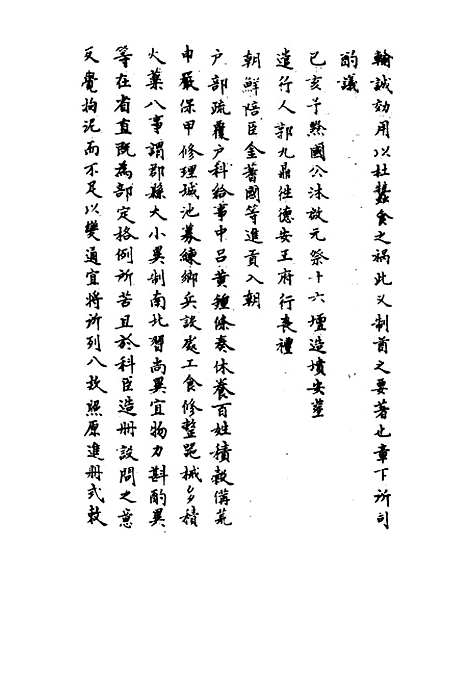 輸誠効用以杜蠶食之禍此又制酋之要著也章下所司
酌議
己亥予黔國公沐啟元祭十六壇造墳安塟
遣行人郭九鼎徃德安王府行喪禮
朝鮮陪臣金蓍國等進貢入朝
户部疏覆户科給事中吕黄鍾條奏休養百姓積穀備荒
申嚴保甲修理城池募練鄉兵設處工食修整器械多積
火藥八事謂郡縣大小異制南北習尚異宜物力斟酌異
等在省直既為部定格例所苦且於科臣造册設問之意
反覺拘泥而不足以變通宜將所列八款照原進册式敕